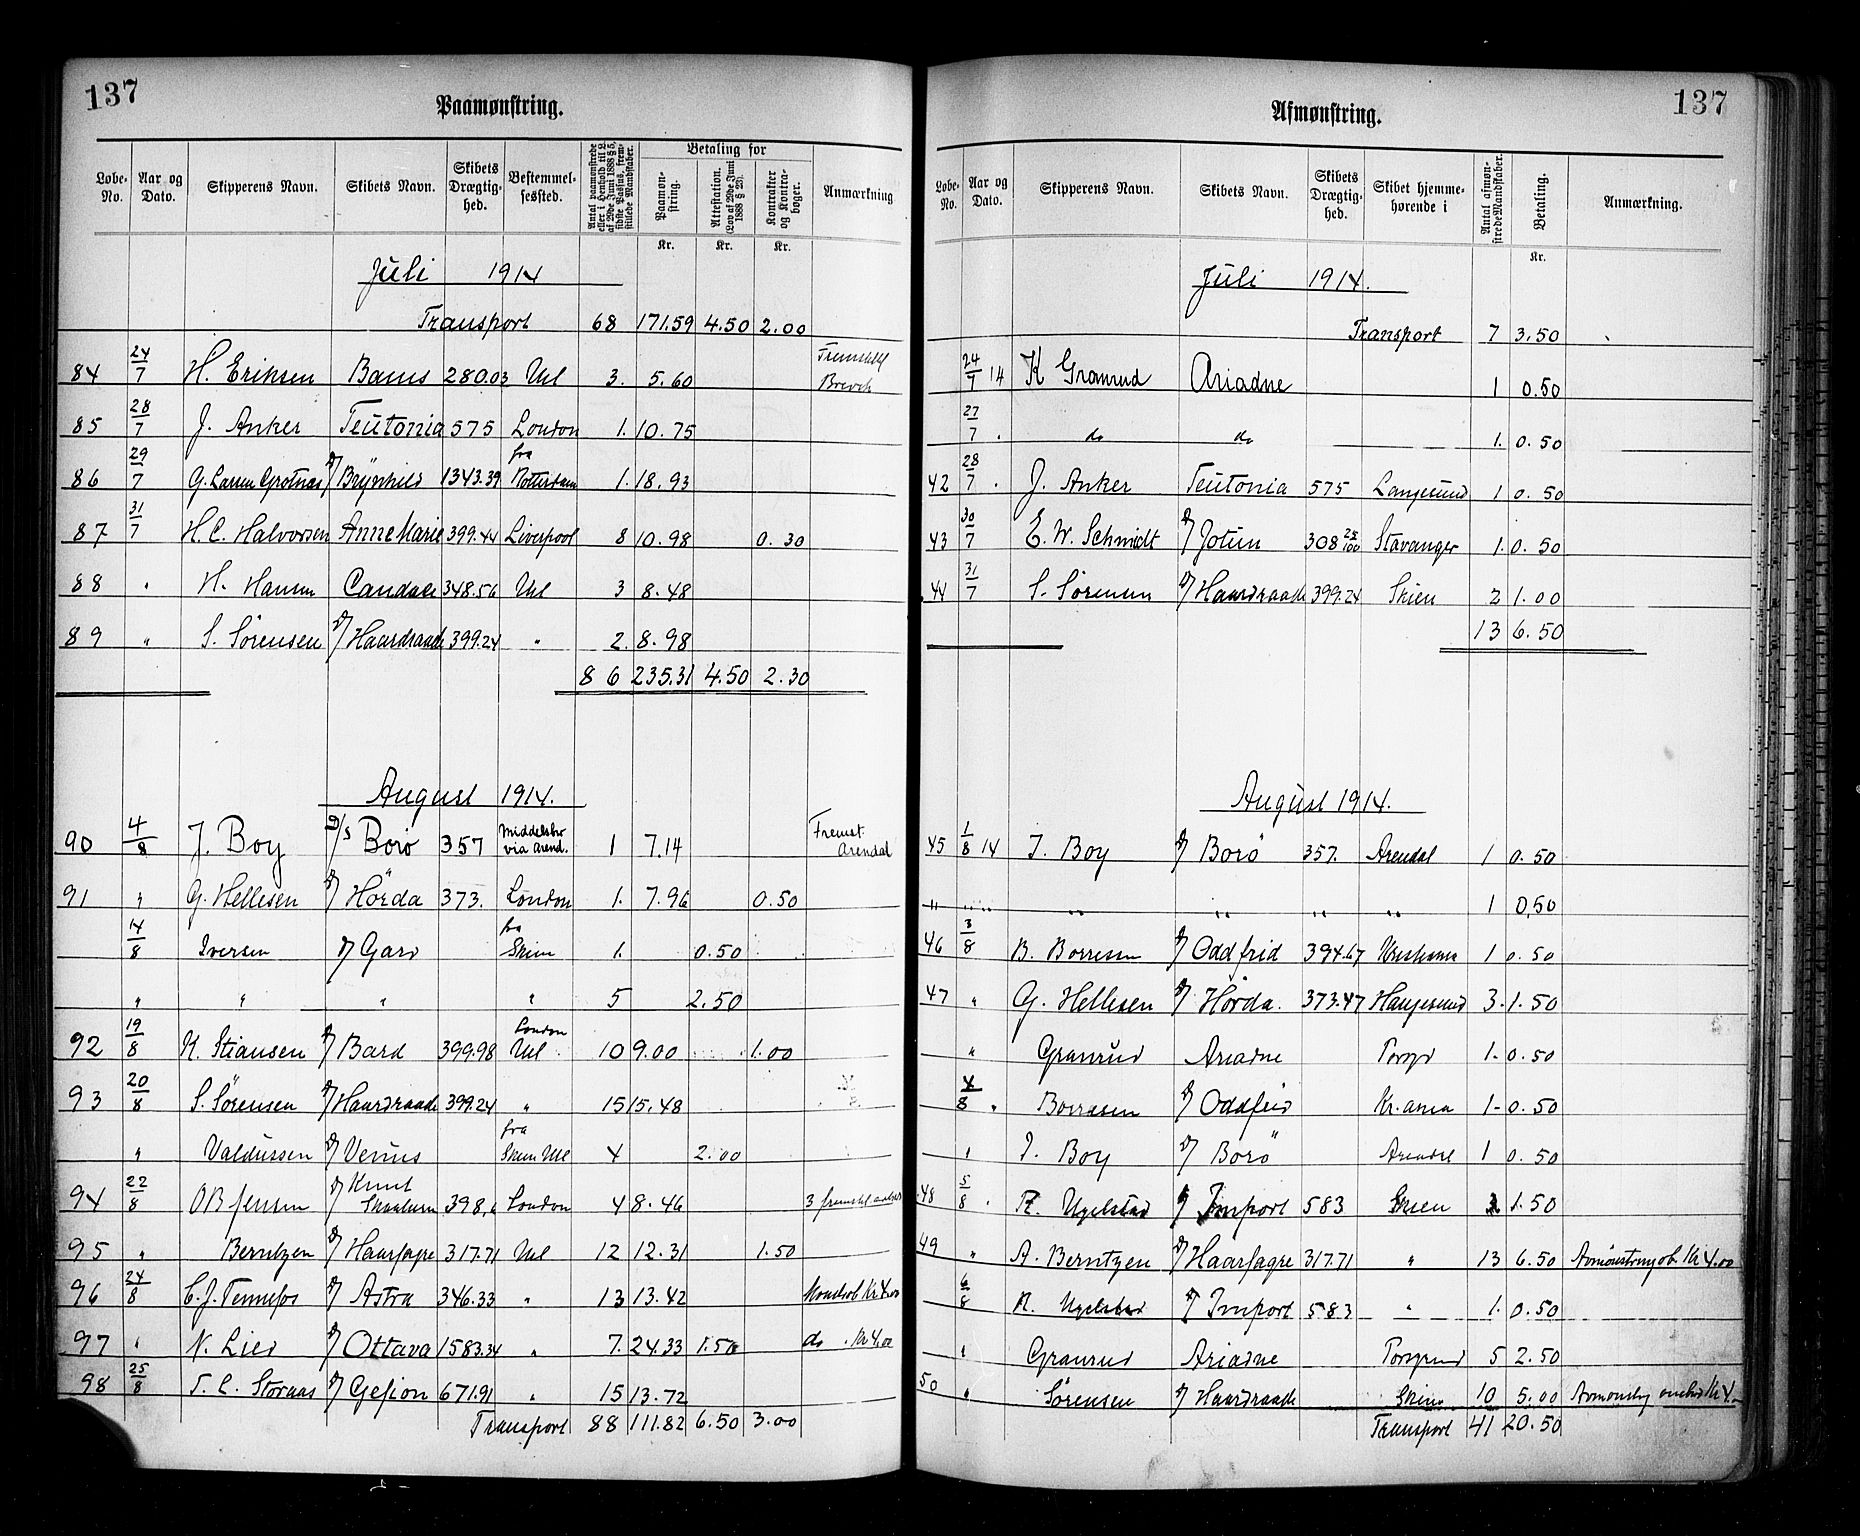 137
Paamønstring.
Løbe-No. Aar og Dato. Skipperens Navn. Skibets Navn. Skibets Drægtighed. Bestemmelsessted. Antal paamønstrede eller i Henhold til L. af 29de Juni 1888 § 5, sidste Passus, fremstillede Mandskaber. Betaling for Paamønstring. Attestation. (Lov af 29de Juni 1888 § 23). Kontrakter og Kontrabøger. Anmærkning
Kr. Kr. Kr.
Juli 1914
Transport 68 171.59 4.50 2.00
84 24/7 H. Eriksen 280.03 Udl 3. 5.60 Brevik
85 28/7 J. Anker Teutonia 575 London 1. 10.75
86 29/7 G. Larsen Grotnæs D/ Brynhild 1343.39 fra Rotterdam 1. 18.93
87 31/7 H. C. Halvorsen Anne Marie 399.44 Liverpool 8 10.98 0.30
88 " H. Hansen Candace 348.56 Udl 3 8.48
89 " S. Sørensen D/ Haardraade 399.24 " 2. 8.98
86 235.31 4.50 2.30
August 1914.
90 4/8 J. Boy D/S Borø 357 Middelsbro via Arend. 1 7.14 Fremst. Arendal
91 " G. Hellesen D/ Hørda 373. London 1. 7.96 0.50
14/8 Iversen D/ Gard fra Skien 1. 0.50
" " " " 5 2.50
92 19/8 K. Stiansen D/ Bard 399.98 London Udl. 10 9.00 1.00
93 20/8 S. Sørensen D/ Haardraade 399.24 " 15 15.48
" Valdussen D/ Venus fra Skien Udl 4 2.00
94 22/8 O B Jensen D/ Knut Skaaluren 398,6 London 4 8.46 3 fremstl.
95 " Berntzen D/ Haarfagre 317.71 Udl 12 12.31 1.50
96 24/8 C. J. D/ Astra 346.33 " 13 13.42 Kr 4.00
97 " N. Lied D/ Ottava 1583.34 " 7. 24.33 1.50 do. Kr 4.00
98 25/8 T. C. Storaas D/ Gefion 671.91 " 15 13.72
Transport 88 111.82 6.50 3.00
137
Afmønstring.
Løbe-No. Aar og Dato. Skipperens Navn. Skibets Navn. Skibets Drægtighed. Skibet hjemmehørende i Antal afmønstrede Mandskaber. Betaling. Anmærkning.
Kr.
Juli 1914.
Transport 7 3.50
24/7 14 K Granrud Ariadne 1 0.50
27/7 . do do 1. 0.50
42 28/7 . J. Anker Teutonia 575 Langesund 1 0.50
43 30/7 E. W. Schmidt D/ Jotun 308 25/100 Stavanger 1. 0.50
44 31/7 S. Sørensen D/ Haardraade 399.24 Skien 2 1.00
13 6.50
August 1914.
45 1/8 14 J. Boy D/ Borø 357. Arendal 1 0.50
" " " " " " 1 0,50
46 3/8 B. Borresen D/ Oddfrid 394.67 1 0.50
47 " G. Hellesen D/ Hørda. 373.47 Haugesund 3. 1.50
" Granrud Ariadne Porsgr 1- 0.50
4/8 " Borresen D/ Oddfrid Kr.ania 1- 0.50
" J. Boy D/ Borø Arendal 1 0.50
48 5/8 . R. Ugelstad D/ Import 583 Skien 1.50
49 " A. Berntzen D/ Haarfagre 317.71 " 13 6.50 Kr 4.00
6/8 R. Ugelstad D/ Import 583 " 1. 0.50
" Granrud Ariadne Porsgrund 5 2.50
50 " Sørensen D/ Haardraade Skien 10 5.00 Kr 4.-
Transport 41 20.50